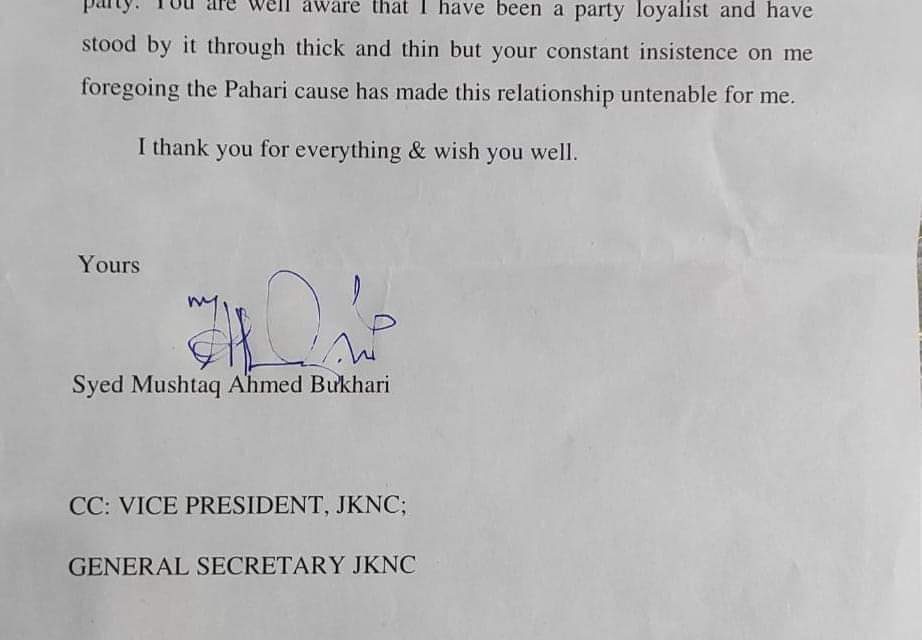 party. You are well aware that I have been a party loyalist and have
stood by it through thick and thin but your constant insistence on me
foregoing the Pahari cause has made this relationship untenable for me.
I thank you for everything & wish you well.
Yours
Syed Mushtaq Ahmed Bukhari
CC: VICE PRESIDENT, JKNC;
GENERAL SECRETARY JKNC